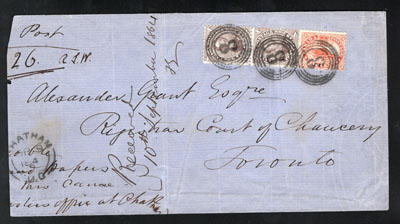 Post
26. R.S.W.
Alexander Grant Esqre
Registrar Court of Chancery
Toronto
Received
10th September 1864
CHATHAM
8
8
8
papers
this cause
office at Chatham